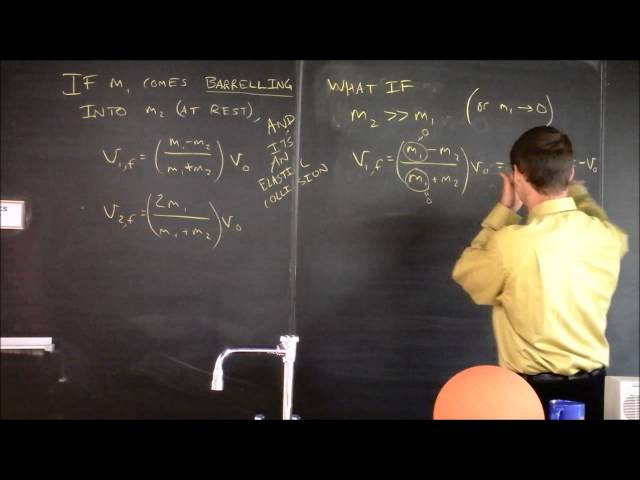 IF m₁ COMES BARRELLING
INTO m₂ (AT REST),
AND
IT'S
AN
ELASTIC
COLLISION
V₁,f = (m₁-m₂ / m₁+m₂) V₀
V₂,f = (2m₁ / m₁+m₂) V₀
WHAT IF
m₂ >> m₁ (or m₁ → 0)
V₁,f = (m₁ - m₂ / m₁ + m₂) V₀ = -V₀
0
0